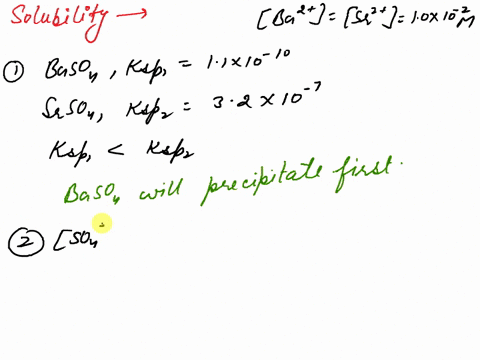 Solubility →
[Ba²⁺] = [Sr²⁺] = 1.0 × 10⁻² M
① BaSO₄, Ksp₁ = 1.1 × 10⁻¹⁰
SrSO₄, Ksp₂ = 3.2 × 10⁻⁷
Ksp₁ < Ksp₂
BaSO₄ will precipitate first.
② [SO₄²